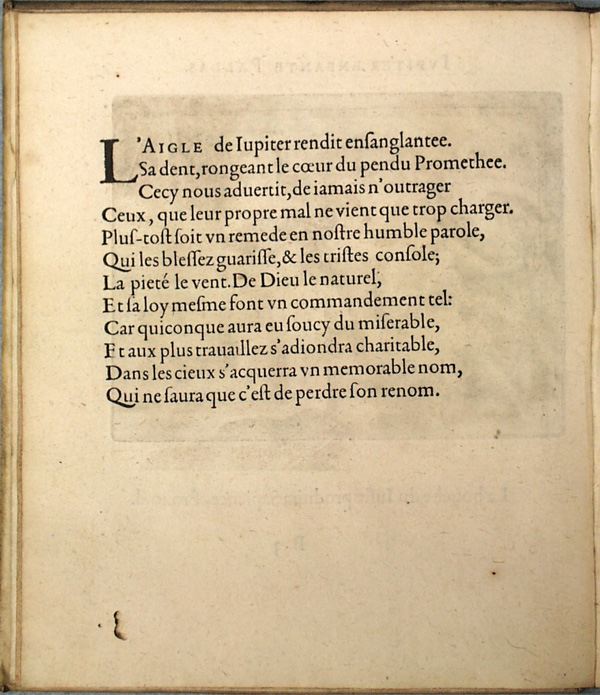 L'AIGLE de Iupiter rendit enſanglantee.
Sa dent, rongeant le cœur du pendu Promethee.
Cecy nous aduertit, de iamais n'outrager
Ceux, que leur propre mal ne vient que trop charger.
Pluſ-toſt ſoit vn remede en noſtre humble parole,
Qui les bleſſez guariſſe, & les triſtes conſole;
La pieté le vent. De Dieu le naturel,
Et ſa loy meſme font vn commandement tel:
Car quiconque aura eu ſoucy du miſerable,
Et aux plus trauaillez s'adiondra charitable,
Dans les cieux s'acquerra vn memorable nom,
Qui ne ſaura que c'eſt de perdre ſon renom.